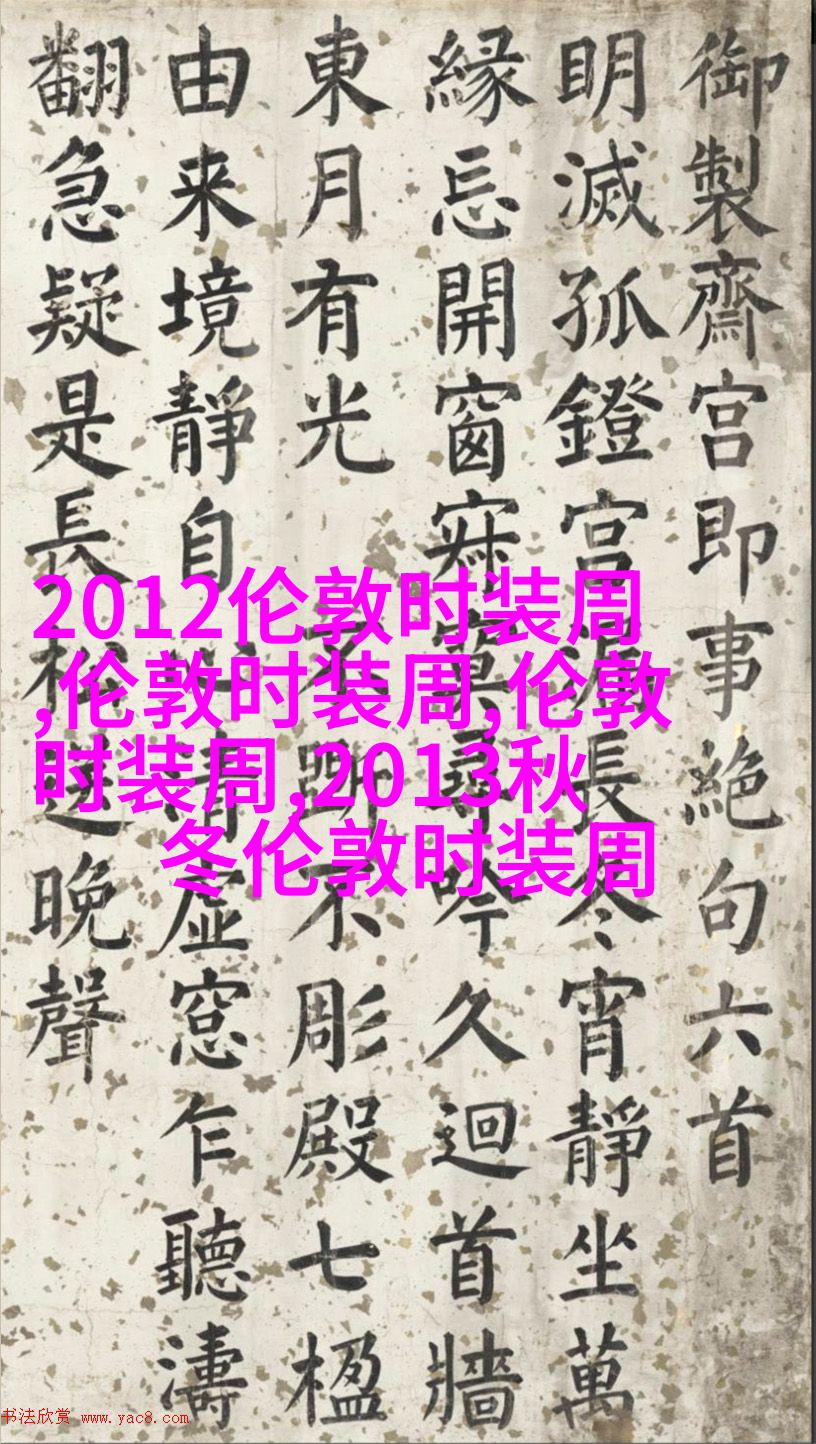 御製齋宮即事絶句六首
明滅孤鐙宮漏長今宵靜坐萬
緣忘開窗寂寞尋吟久迴首牆
東月有光 不彫殿七楹
由来境靜自清虛窓乍聽濤
翻急疑是長松送晚聲
2012伦敦时装周
,伦敦时装周,伦敦
时装周,2013秋
冬伦敦时装周
书法欣赏 www.yac8.com